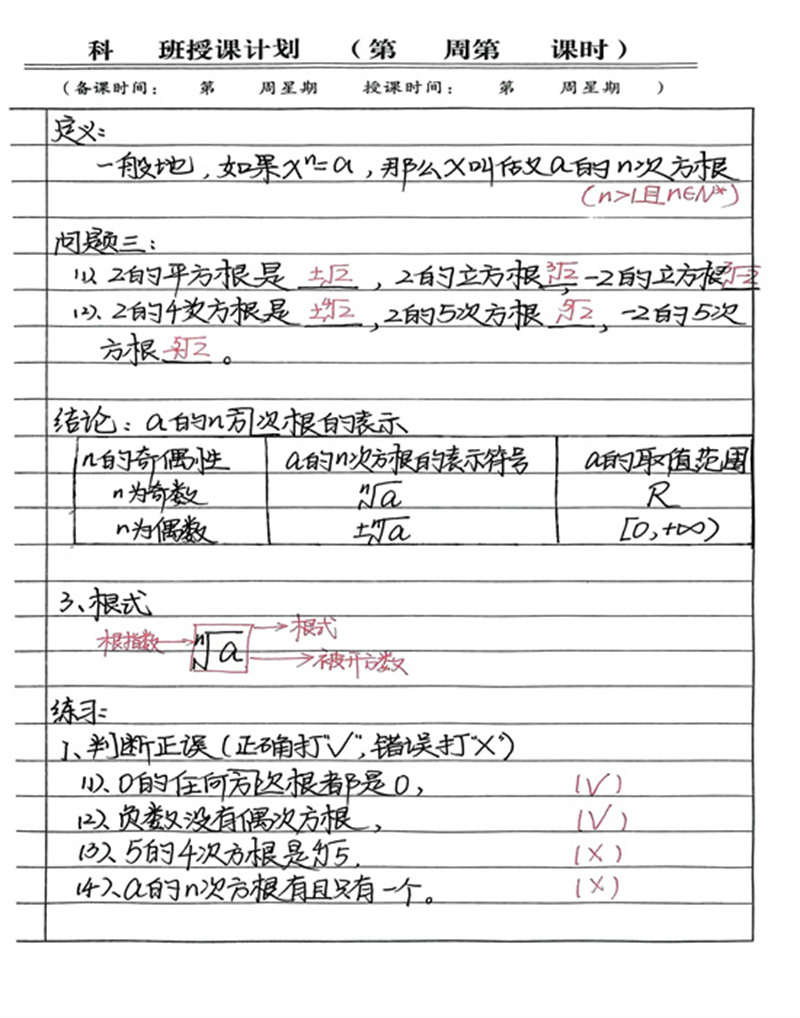 科 班授课计划 (第 周第 课时)
(备课时间: 第 周星期 授课时间: 第 周星期 )
定义:
一般地,如果xⁿ=a,那么x叫做a的n次方根
(n>1且n∈N*)
问题三:
(1)、2的平方根是 ±√2 ,2的立方根 ∛2,-2的立方根 ∛-2
(2)、2的4次方根是 ±∜2 ,2的5次方根 ⁵√2 ,-2的5次
方根 ⁵√2 。
结论:a的n次根的表示
n的奇偶性 a的n次方根的表示符号 a的取值范围
n为奇数 ⁿ√a R
n为偶数 ±ⁿ√a [0,+∞)
3、根式
根指数 ⁿ√a 根式
被开方数
练习:
1、判断正误(正确打"√",错误打"×")
(1)、0的任何方次根都是0, (√)
(2)、负数没有偶次方根, (√)
(3)、5的4次方根是∜5. (×)
(4)、a的n次方根有且只有一个。 (×)